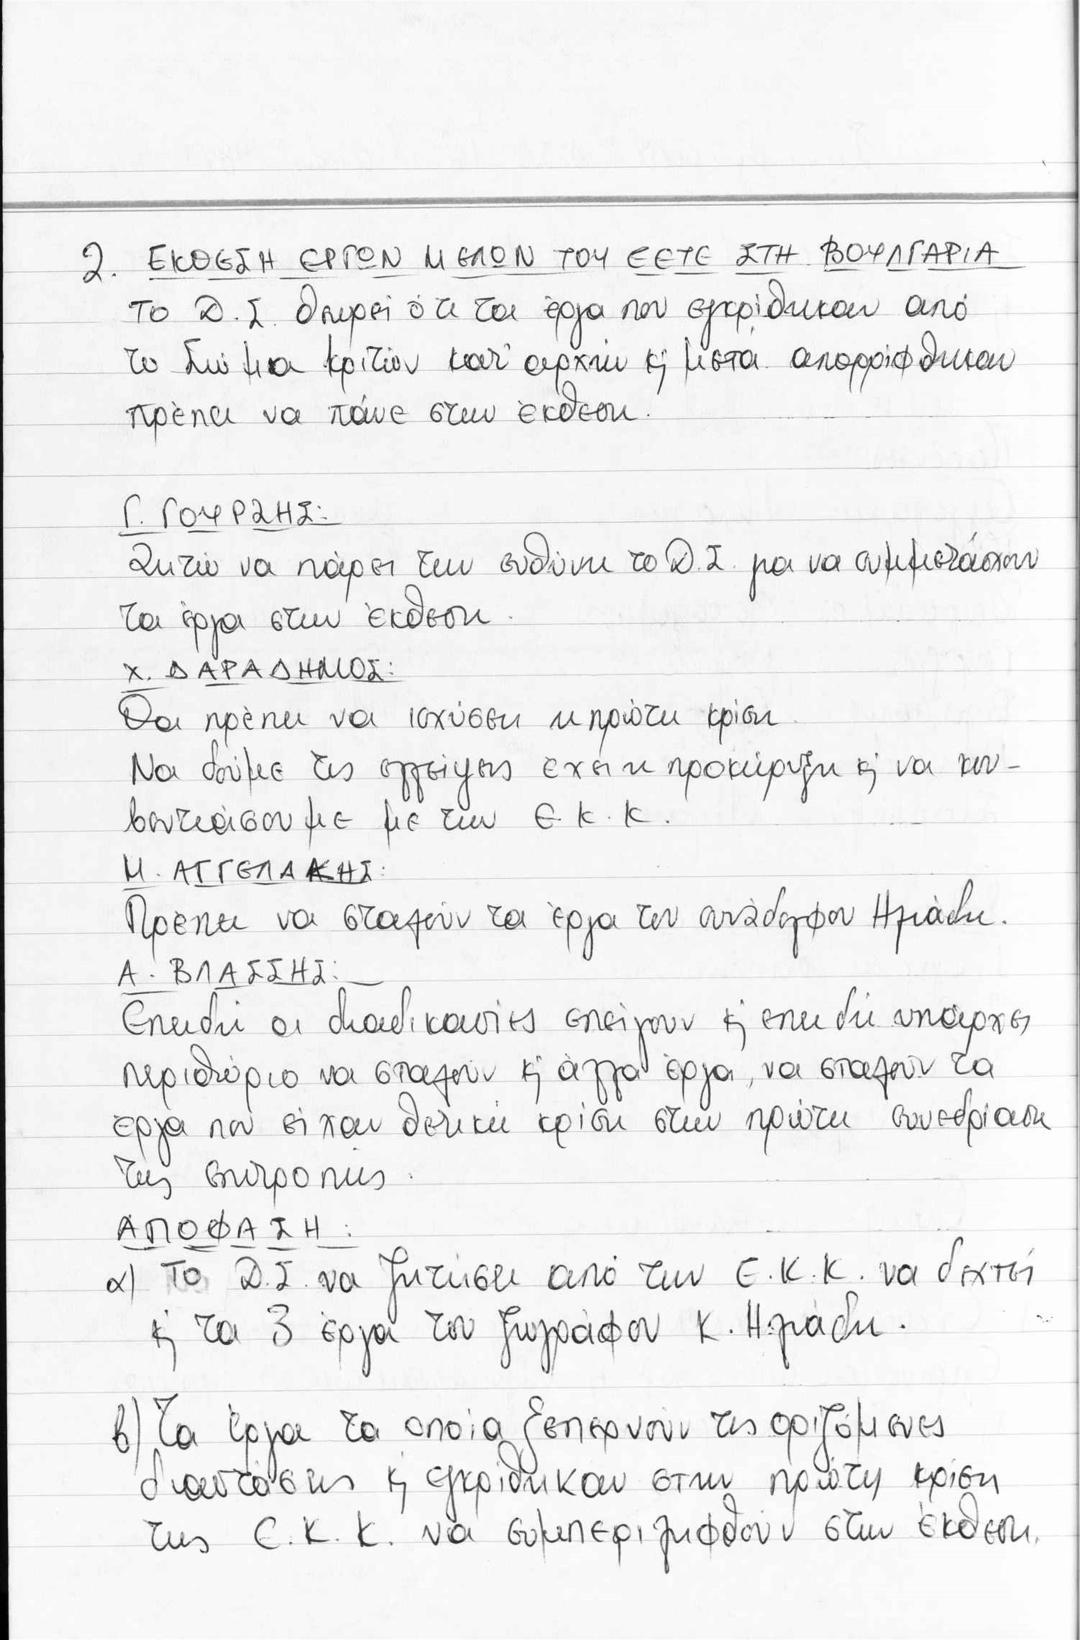 2. ΕΚΘΕΣΗ ΕΡΓΩΝ ΜΕΛΩΝ ΤΟΥ ΕΕΤΕ ΣΤΗ ΒΟΥΛΓΑΡΙΑ
Το Δ.Σ. θεωρεί ότι τα έργα που εγκρίθηκαν από
το Σώμα Κριτών κατ' αρχήν κ' μετά απορρίφθηκαν
πρέπει να πάνε στην έκθεση.
Γ. ΓΟΥΡΖΗΣ:
Ζητώ να πάρει την ευθύνη το Δ.Σ. για να συμμετάσχουν
τα έργα στην έκθεση.
Χ. ΔΑΡΑΔΗΜΟΣ:
Θα πρέπει να ισχύσει η πρώτη κρίση
Να δούμε τις ελλείψεις έχει η προκύρηξη κ' να κου-
βεντιάσουμε με την Ε.Κ.Κ.
Μ. ΑΓΓΕΛΑΚΗΣ:
Πρέπει να σταλούν τα έργα του συνάδελφου Ηλιάδη.
Α. ΒΛΑΣΣΗΣ:
Επειδή οι διαδικασίες επείγουν κ' επειδή υπάρχει
περιθώριο να σταλούν κ' άλλα έργα, να σταλούν τα
έργα που είχαν θετική κρίση στην πρώτη συνεδρίαση
της επιτροπής.
ΑΠΟΦΑΣΗ:
α) Το Δ.Σ. να ζητήσει από την Ε.Κ.Κ. να δεχτεί
κ' τα 3 έργα του ζωγράφου κ. Ηλιάδη.
β) Τα έργα τα οποία ξεπερνούν τις οριζόμενες
διαστάσεις κ' εγκρίθηκαν στην πρώτη κρίση
της Ε.Κ.Κ. να συμπεριληφθούν στην έκθεση.